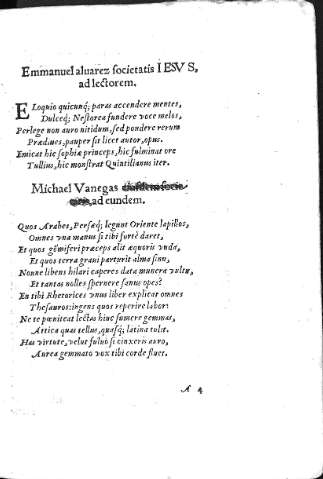 Emmanuel aluarez societatis IESVS,
ad lectorem.
Eloquio quicunq; paras accendere mentes,
Dulceq; Nestorea fundere voce melos,
Perlege non auro nitidum, sed pondere rerum
Prædiues, pauper sit licet autor, opus.
Emicat hic sophiæ princeps, hic fulminat ore
Tullius, hic monstrat Quintilianus iter.
Michael Vanegas
ad eundem.
Quos Arabes, Persæq; legunt Oriente lapillos,
Omnes vna manus si tibi fortè daret,
Et quos gemiferi præceps alit æquoris vnda,
Et quos terra graui parturit alma sinu,
Nonne libens hilari caperes data munera vultu,
Et tantas nolles spernere sanus opes?
En tibi Rhetorices vnus liber explicat omnes
Thesauros: ingens quos reperire labor:
Ne te pœniteat lectas hinc sumere gemmas,
Attica quas tellus, quasq; latina tulit.
Has virtute, velut fuluo si cinxeris auro,
Aurea gemmato vox tibi corde fluet.
A 4